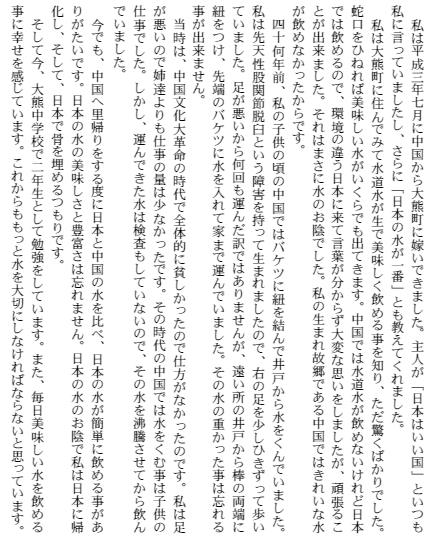 私は平成三年七月に中国から大熊町に嫁いできました。主人が「日本はいい国」といつも
私に言っていましたし、さらに「日本の水が一番」とも教えてくれました。
私は大熊町に住んでみて水道水が生で美味しく飲める事を知り、ただ驚くばかりでした。
蛇口をひねれば美味しい水がいくらでも出てきます。中国では水道水が飲めないけれど日本
では飲めるので、環境の違う日本に来て言葉が分からず大変な思いをしましたが、頑張るこ
とが出来ました。それはまさに水のお陰でした。私の生まれ故郷である中国ではきれいな水
が飲めなかったからです。
四十何年前、私の子供の頃の中国ではバケツに紐を結んで井戸から水をくんでいました。
私は先天性股関節脱臼という障害を持って生まれましたので、右の足を少しひきずって歩い
ていました。足が悪いから何回も運んだ訳ではありませんが、遠い所の井戸から棒の両端に
紐をつけ、先端のバケツに水を入れて家まで運んでいました。その水の重かった事は忘れる
事が出来ません。
当時は、中国文化大革命の時代で全体的に貧しかったので仕方がなかったのです。私は足
が悪いので姉達よりも仕事の量は少なかったです。その時代の中国では水をくむ事は子供の
仕事でした。しかし、運んできた水は検査もしていないので、その水を沸騰させてから飲ん
でいました。
今でも、中国へ里帰りをする度に日本と中国の水を比べ、日本の水が簡単に飲める事があ
りがたいです。日本の水の美味しさと豊富さは忘れません。日本の水のお陰で私は日本に帰
化し、そして、日本で骨を埋めるつもりです。
そして今、大熊中学校で二年生として勉強をしています。また、毎日美味しい水を飲める
事に幸せを感じています。これからももっと水を大切にしなければならないと思っています。